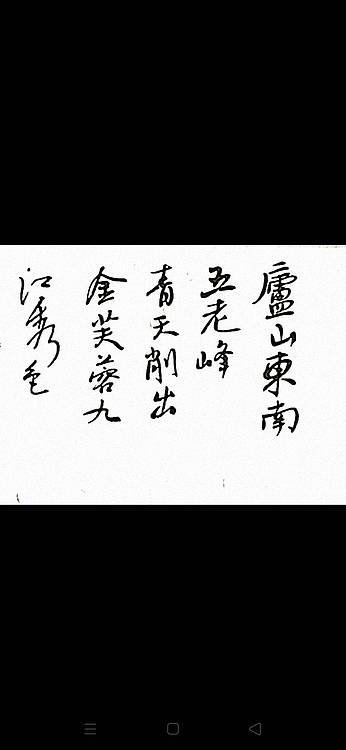 廬山東南
五老峰
青天削出
金芙蓉九
江秀色